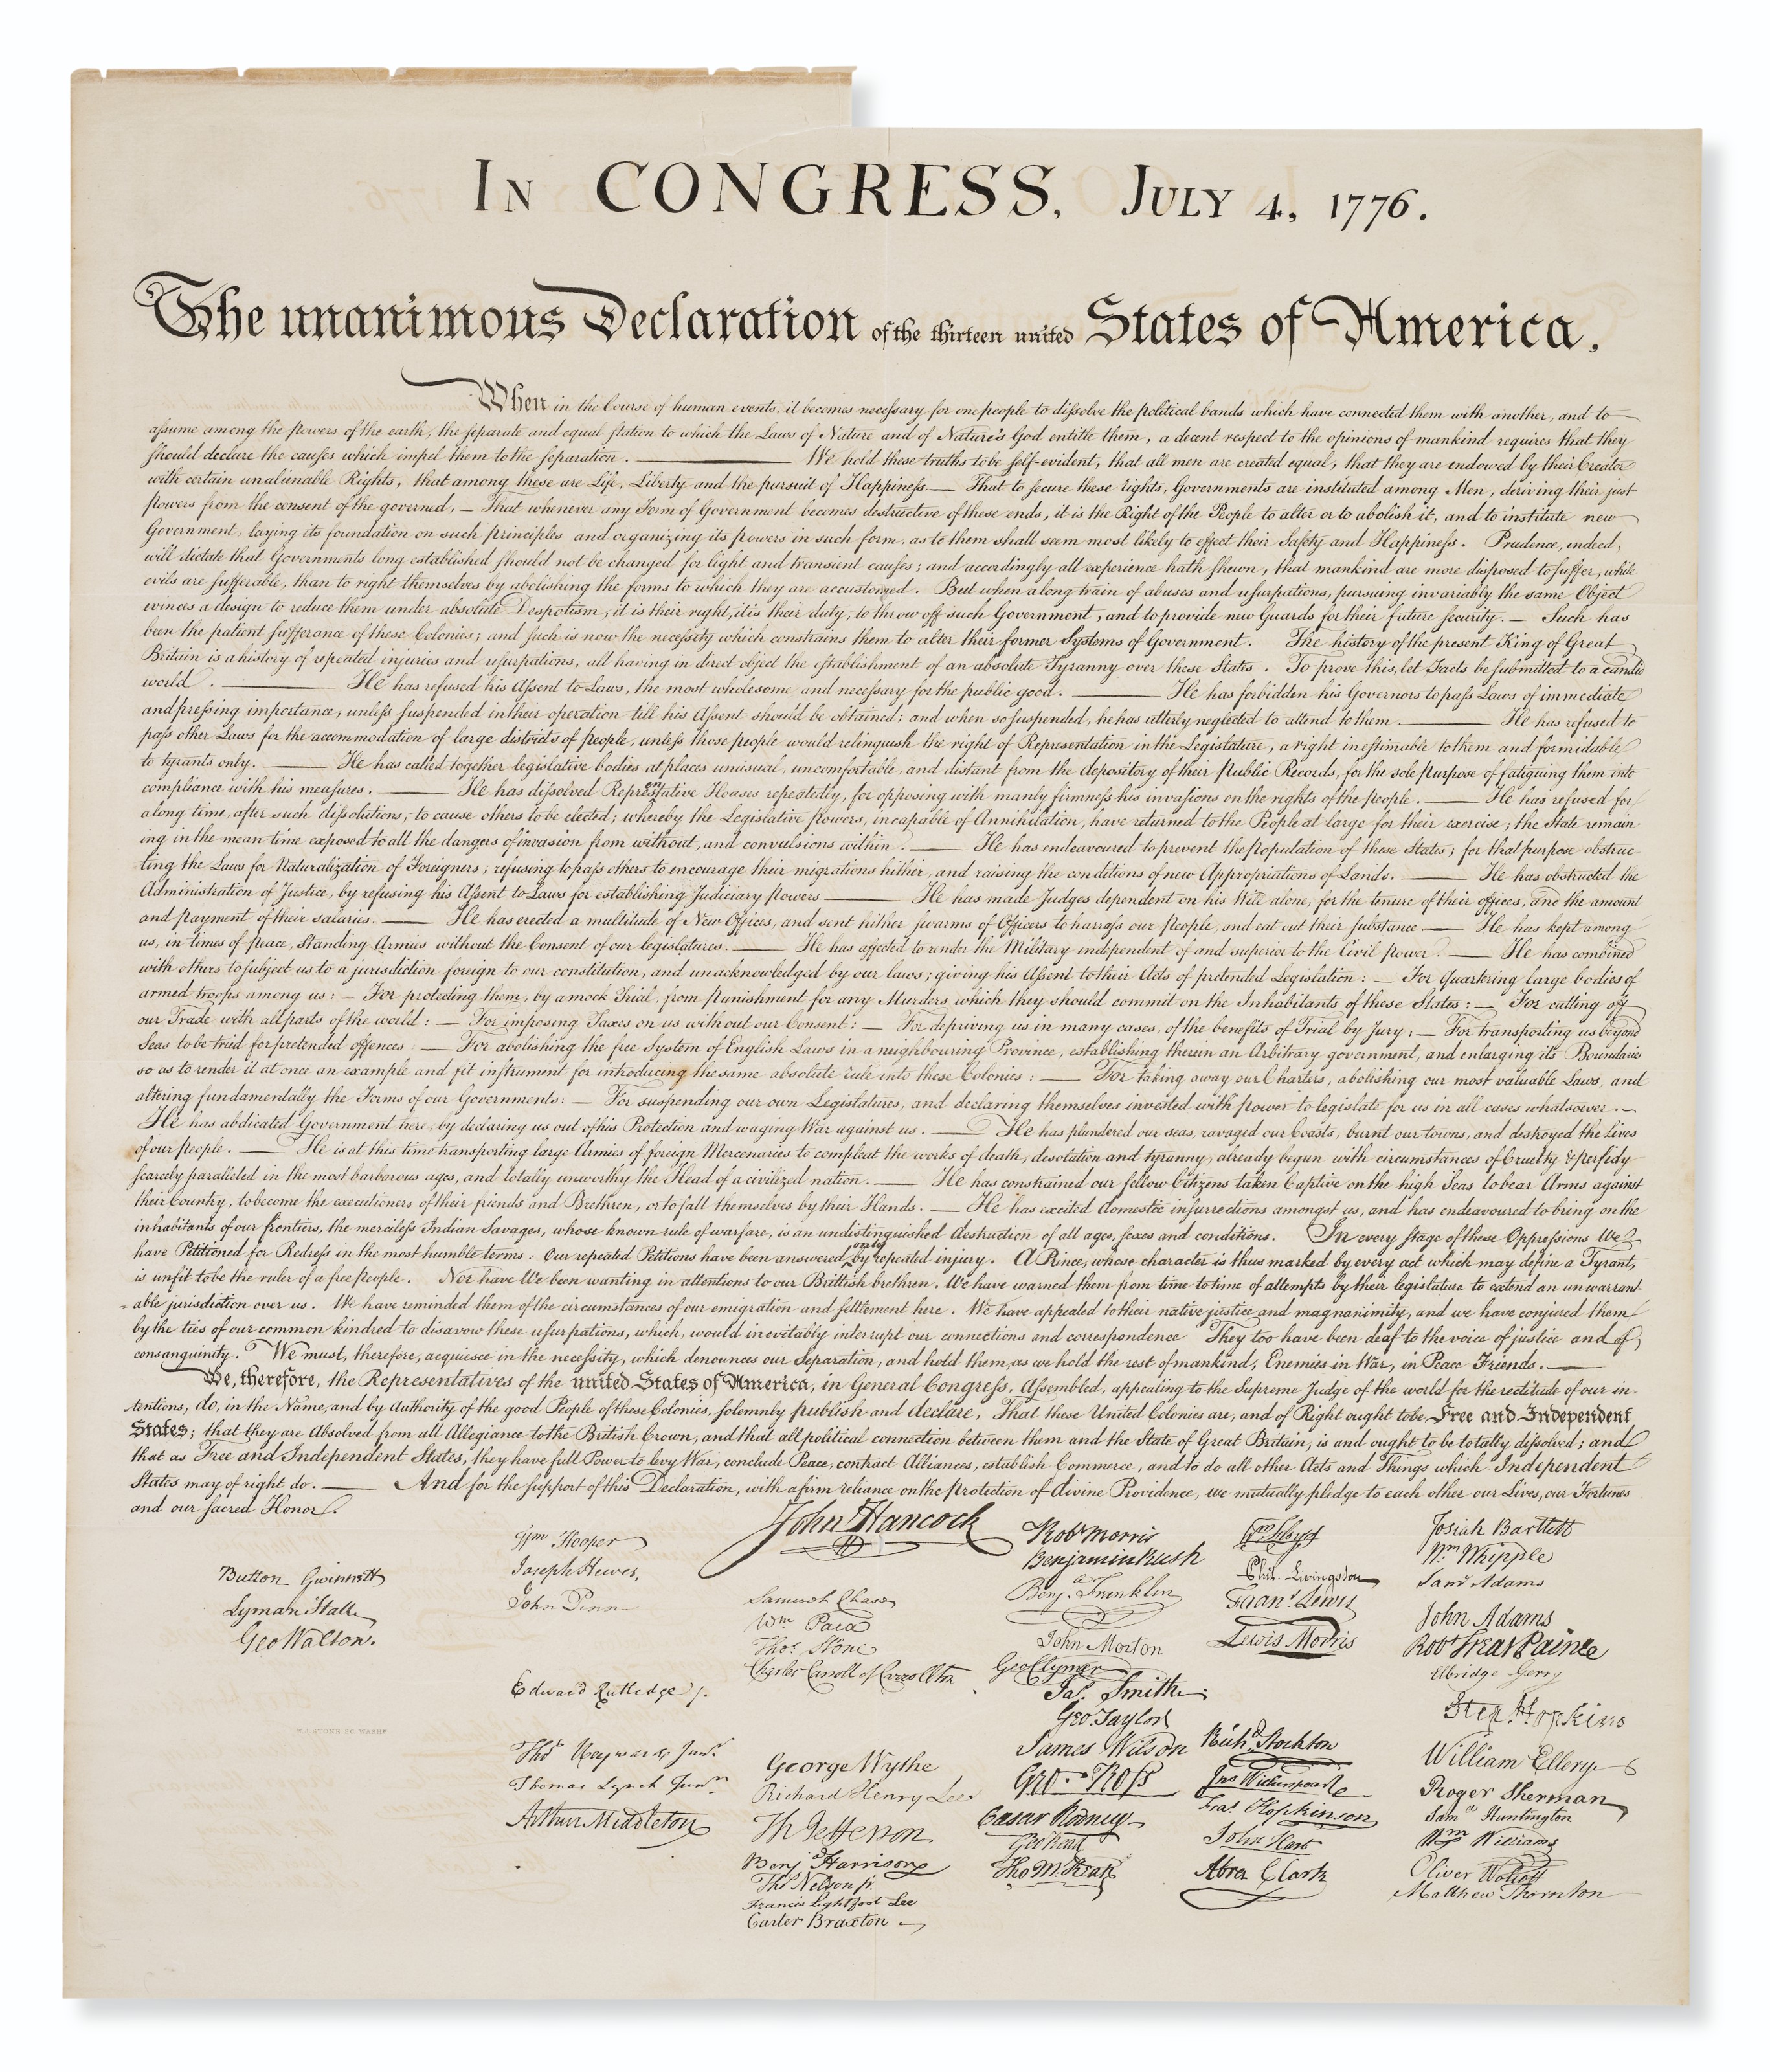 In CONGRESS, July 4, 1776.
The unanimous Declaration of the thirteen united States of America,
When in the Course of human events, it becomes necessary for one people to dissolve the political bands which have connected them with another, and to
assume among the powers of the earth, the separate and equal station to which the Laws of Nature and of Nature's God entitle them, a decent respect to the opinions of mankind requires that they
should declare the causes which impel them to the separation. — We hold these truths to be self-evident, that all men are created equal, that they are endowed by their Creator
with certain unalienable Rights, that among these are Life, Liberty and the pursuit of Happiness. — That to secure these rights, Governments are instituted among Men, deriving their just
powers from the consent of the governed, — That whenever any Form of Government becomes destructive of these ends, it is the Right of the People to alter or to abolish it, and to institute new
Government, laying its foundation on such principles and organizing its powers in such form, as to them shall seem most likely to effect their Safety and Happiness. Prudence, indeed,
will dictate that Governments long established should not be changed for light and transient causes; and accordingly all experience hath shewn, that mankind are more disposed to suffer, while
evils are sufferable, than to right themselves by abolishing the forms to which they are accustomed. But when a long train of abuses and usurpations, pursuing invariably the same Object
evinces a design to reduce them under absolute Despotism, it is their right, it is their duty, to throw off such Government, and to provide new Guards for their future security. — Such has
been the patient sufferance of these Colonies; and such is now the necessity which constrains them to alter their former Systems of Government. The history of the present King of Great
Britain is a history of repeated injuries and usurpations, all having in direct object the establishment of an absolute Tyranny over these States. To prove this, let Facts be submitted to a candid
world. — He has refused his Assent to Laws, the most wholesome and necessary for the public good. — He has forbidden his Governors to pass Laws of immediate
and pressing importance, unless suspended in their operation till his Assent should be obtained; and when so suspended, he has utterly neglected to attend to them. — He has refused to
pass other Laws for the accommodation of large districts of people, unless those people would relinquish the right of Representation in the Legislature, a right inestimable to them and formidable
to tyrants only. — He has called together legislative bodies at places unusual, uncomfortable, and distant from the depository of their public Records, for the sole purpose of fatiguing them into
compliance with his measures. — He has dissolved Representative Houses repeatedly, for opposing with manly firmness his invasions on the rights of the people. — He has refused for
a long time, after such dissolutions, to cause others to be elected; whereby the Legislative powers, incapable of Annihilation, have returned to the People at large for their exercise; the State remain
ing in the mean time exposed to all the dangers of invasion from without, and convulsions within. — He has endeavoured to prevent the population of these States; for that purpose obstruc-
ting the Laws for Naturalization of Foreigners; refusing to pass others to encourage their migrations hither, and raising the conditions of new Appropriations of Lands. — He has obstructed the
Administration of Justice, by refusing his Assent to Laws for establishing Judiciary powers — He has made Judges dependent on his Will alone, for the tenure of their offices, and the amount
and payment of their salaries. — He has erected a multitude of New Offices, and sent hither swarms of Officers to harrass our people, and eat out their substance. — He has kept among
us, in times of peace, Standing Armies without the Consent of our legislatures. — He has affected to render the Military independent of and superior to the Civil power. — He has combined
with others to subject us to a jurisdiction foreign to our constitution, and unacknowledged by our laws; giving his Assent to their Acts of pretended Legislation: — For Quartering large bodies of
armed troops among us: — For protecting them, by a mock Trial, from punishment for any Murders which they should commit on the Inhabitants of these States: — For cutting off
our Trade with all parts of the world: — For imposing Taxes on us without our Consent: — For depriving us in many cases, of the benefits of Trial by Jury: — For transporting us beyond
Seas to be tried for pretended offences — For abolishing the free System of English Laws in a neighbouring Province, establishing therein an Arbitrary government, and enlarging its Boundaries
so as to render it at once an example and fit instrument for introducing the same absolute rule into these Colonies: — For taking away our Charters, abolishing our most valuable Laws, and
altering fundamentally the Forms of our Governments: — For suspending our own Legislatures, and declaring themselves invested with power to legislate for us in all cases whatsoever. —
He has abdicated Government here, by declaring us out of his Protection and waging War against us. — He has plundered our seas, ravaged our Coasts, burnt our towns, and destroyed the Lives
of our people. — He is at this time transporting large Armies of foreign Mercenaries to compleat the works of death, desolation and tyranny, already begun with circumstances of Cruelty & perfidy
scarcely paralleled in the most barbarous ages, and totally unworthy the Head of a civilized nation. — He has constrained our fellow Citizens taken Captive on the high Seas to bear Arms against
their Country, to become the executioners of their friends and Brethren, or to fall themselves by their Hands. — He has excited domestic insurrections amongst us, and has endeavoured to bring on the
inhabitants of our frontiers, the merciless Indian Savages, whose known rule of warfare, is an undistinguished destruction of all ages, sexes and conditions. In every stage of these Oppressions We
have Petitioned for Redress in the most humble terms: Our repeated Petitions have been answered only by repeated injury. A Prince, whose character is thus marked by every act which may define a Tyrant,
is unfit to be the ruler of a free people. Nor have We been wanting in attentions to our Brittish brethren. We have warned them from time to time of attempts by their legislature to extend an unwarrant-
able jurisdiction over us. We have reminded them of the circumstances of our emigration and settlement here. We have appealed to their native justice and magnanimity, and we have conjured them
by the ties of our common kindred to disavow these usurpations, which, would inevitably interrupt our connections and correspondence They too have been deaf to the voice of justice and of
consanguinity. We must, therefore, acquiesce in the necessity, which denounces our Separation, and hold them, as we hold the rest of mankind, Enemies in War, in Peace Friends. —
We, therefore, the Representatives of the united States of America, in General Congress, Assembled, appealing to the Supreme Judge of the world for the rectitude of our in-
tentions, do, in the Name, and by Authority of the good People of these Colonies, solemnly publish and declare, That these United Colonies are, and of Right ought to be Free and Independent
States; that they are Absolved from all Allegiance to the British Crown, and that all political connection between them and the State of Great Britain, is and ought to be totally dissolved; and
that as Free and Independent States, they have full Power to levy War, conclude Peace, contract Alliances, establish Commerce, and to do all other Acts and Things which Independent
States may of right do. — And for the support of this Declaration, with a firm reliance on the protection of divine Providence, we mutually pledge to each other our Lives, our Fortunes
and our sacred Honor.
Button Gwinnett
Lyman Hall
Geo Walton.
Wm Hooper
Joseph Hewes,
John Penn
Edward Rutledge /.
Thos Heyward Junr.
Thomas Lynch Junr.
Arthur Middleton
John Hancock
Samuel Chase
Wm. Paca
Thos. Stone
Charles Carroll of Carrollton
George Wythe
Richard Henry Lee
Th Jefferson
Benj Harrison
Thos Nelson jr.
Francis Lightfoot Lee
Carter Braxton
Robt Morris
Benjamin Rush
Benj. Franklin
John Morton
Geo Clymer
Jas. Smith
Geo. Taylor
James Wilson
Geo. Ross
Caesar Rodney
Geo Read
Tho M:Kean
Wm Floyd
Phil. Livingston
Frans. Lewis
Lewis Morris
Richd. Stockton
Jno Witherspoon
Fras. Hopkinson
John Hart
Abra Clark
Josiah Bartlett
Wm. Whipple
Saml Adams
John Adams
Robt Treat Paine
Elbridge Gerry
Step. Hopkins
William Ellery
Roger Sherman
Samel Huntington
Wm Williams
Oliver Wolcott
Matthew Thornton
W.J. STONE SC. WASHN